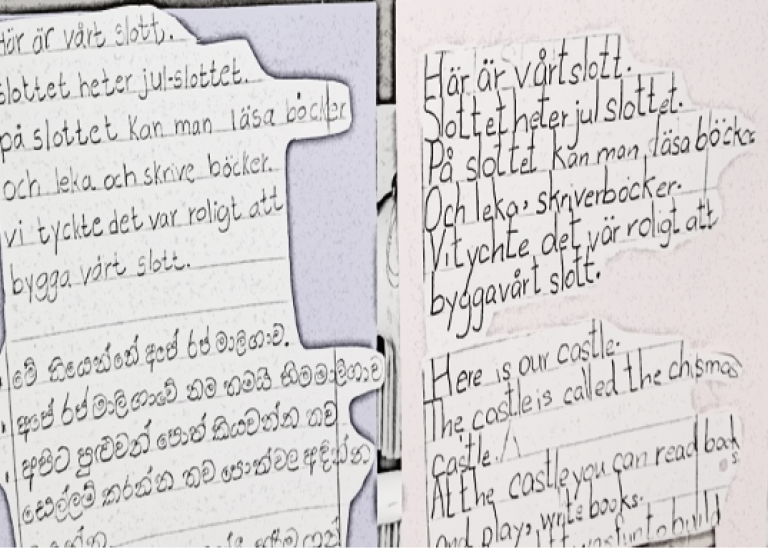 Här är vårt slott.
slottet heter jul-slottet.
på slottet kan man läsa böcker
och leka och skrive böcker.
vi tyckte det var roligt att
bygga vårt slott.
මේ තියෙන්නේ අපේ රජ මාලිගාව.
අපේ රජ මාලිගාවේ නම තමයි හිමමාලිගාව
අපිට පුළුවන් පොත් කියවන්න තව
සෙල්ලම් කරන්න තව පොත්වල අඳින්න
Här är vårt slott.
Slottet heter jul slottet.
På slottet kan man läsa böcker
Och leka, skriver böcker.
Vi tychte det vär roligt att
bygga vårt slott.
Here is our castle.
The castle is called the chismas
castle.
At the castle you can read book
s.
and play, write books.
fun to build